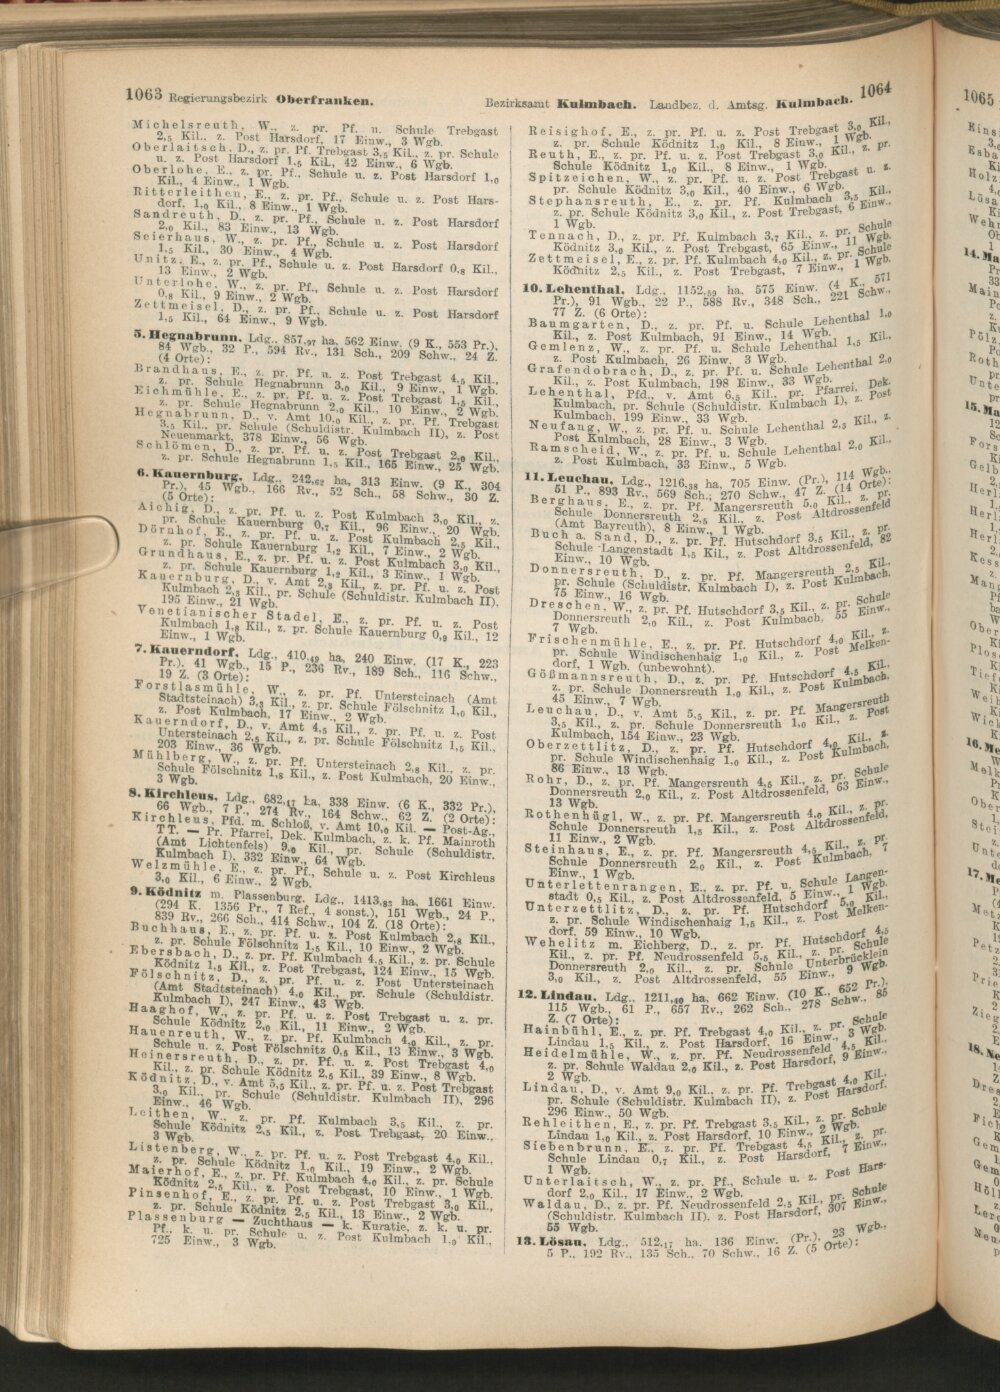 1063 Regierungsbezirk Oberfranken.
Bezirksamt Kulmbach. Landbez. d. Amtsg. Kulmbach. 1064
Michelsreuth, W., z. pr. Pf. u. Schule Trebgast
2,5 Kil., z. Post Harsdorf, 17 Einw., 3 Wgb.
Oberlaitsch, D., z. pr. Pf. Trebgast 3,5 Kil., z. pr. Schule
u. z. Post Harsdorf 1,5 Kil., 42 Einw., 6 Wgb.
Oberlohe, E., z. pr. Pf., Schule u. z. Post Harsdorf 1,0
Kil., 4 Einw., 1 Wgb.
Ritterleithen, E., z. pr. Pf., Schule u. z. Post Hars-
dorf, 1,0 Kil., 8 Einw., 1 Wgb.
Sandreuth, D., z. pr. Pf., Schule u. z. Post Harsdorf
2,0 Kil., 83 Einw., 13 Wgb.
Seierhaus, W., z. pr. Pf., Schule u. z. Post Harsdorf
1,5 Kil., 30 Einw., 4 Wgb.
Unitz, E., z. pr. Pf., Schule u. z. Post Harsdorf 0,8 Kil.,
13 Einw., 2 Wgb.
Unterlohe, W., z. pr. Pf., Schule u. z. Post Harsdorf
0,8 Kil., 9 Einw., 2 Wgb.
Zettmeisel, D., z. pr. Pf., Schule u. z. Post Harsdorf
1,5 Kil., 64 Einw., 9 Wgb.
5. Hegnabrunn, Ldg., 857,97 ha, 562 Einw. (9 K., 553 Pr.),
84 Wgb., 32 P., 594 Rv., 131 Sch., 209 Schw., 24 Z.
(4 Orte):
Brandhaus, E., z. pr. Pf. u. z. Post Trebgast 4,5 Kil.,
z. pr. Schule Hegnabrunn 3,0 Kil., 9 Einw., 1 Wgb.
Eichmühle, E., z. pr. Pf. u. z. Post Trebgast 1,5 Kil.,
z. pr. Schule Hegnabrunn 2,0 Kil., 10 Einw., 2 Wgb.
Hegnabrunn, D., v. Amt 10,0 Kil., z. pr. Pf. Trebgast
3,5 Kil., pr. Schule (Schuldistr. Kulmbach II), z. Post
Neuenmarkt, 378 Einw., 56 Wgb.
Schlömen, D., z. pr. Pf. u. z. Post Trebgast 2,0 Kil.,
z. pr. Schule Hegnabrunn 1,5 Kil., 165 Einw., 25 Wgb.
6. Kauernburg, Ldg., 242,62 ha, 313 Einw. (9 K., 304
Pr.), 45 Wgb., 166 Rv., 52 Sch., 58 Schw., 30 Z.
(5 Orte):
Aichig, D., z. pr. Pf. u. z. Post Kulmbach 3,0 Kil., z.
pr. Schule Kauernburg 0,7 Kil., 96 Einw., 20 Wgb.
Dörnhof, E., z. pr. Pf. u. z. Post Kulmbach 2,5 Kil.,
z. pr. Schule Kauernburg 1,2 Kil., 7 Einw., 2 Wgb.
Grundhaus, E., z. pr. Pf. u. z. Post Kulmbach 3,0 Kil.,
z. pr. Schule Kauernburg 1,2 Kil., 3 Einw., 1 Wgb.
Kauernburg, D., v. Amt 2,3 Kil., z. pr. Pf. u. z. Post
Kulmbach 2,3 Kil., pr. Schule (Schuldistr. Kulmbach II),
195 Einw., 21 Wgb.
Venetianischer Stadel, E., z. pr. Pf. u. z. Post
Kulmbach 1,8 Kil., z. pr. Schule Kauernburg 0,9 Kil., 12
Einw., 1 Wgb.
7. Kauerndorf, Ldg., 410,49 ha, 240 Einw. (17 K., 223
Pr.), 41 Wgb., 15 P., 236 Rv., 189 Sch., 116 Schw.,
19 Z. (3 Orte):
Forstlasmühle, W., z. pr. Pf. Untersteinach (Amt
Stadtsteinach) 3,3 Kil., z. pr. Schule Fölschnitz 1,0 Kil.,
z. Post Kulmbach, 17 Einw., 2 Wgb.
Kauerndorf, D., v. Amt 4,5 Kil., z. pr. Pf. u. z. Post
Untersteinach 2,5 Kil., z. pr. Schule Fölschnitz 1,5 Kil.,
203 Einw., 36 Wgb.
Mühlberg, W., z. pr. Pf. Untersteinach 2,8 Kil., z. pr.
Schule Fölschnitz 1,8 Kil., z. Post Kulmbach, 20 Einw.,
3 Wgb.
8. Kirchleus, Ldg., 682,17 ha, 338 Einw. (6 K., 332 Pr.),
66 Wgb., 7 P., 274 Rv., 164 Schw., 62 Z. (2 Orte):
Kirchleus, Pfd. m. Schloß, v. Amt 10,0 Kil. — Post-Ag.,
TT. — Pr. Pfarrei, Dek. Kulmbach, z. k. Pf. Mainroth
(Amt Lichtenfels) 9,0 Kil., pr. Schule (Schuldistr.
Kulmbach I), 332 Einw., 64 Wgb.
Welzmühle, E., z. pr. Pf., Schule u. z. Post Kirchleus
3,0 Kil., 6 Einw., 2 Wgb.
9. Ködnitz m. Plassenburg, Ldg., 1413,85 ha, 1661 Einw.
(294 K. 1356 Pr., 7 Ref., 4 sonst.), 151 Wgb., 24 P.,
839 Rv., 266 Sch., 414 Schw., 104 Z. (18 Orte):
Buchhaus, E., z. pr. Pf. u. z. Post Kulmbach 2,8 Kil.,
z. pr. Schule Fölschnitz 1,5 Kil., 10 Einw., 2 Wgb.
Ebersbach, D., z. pr. Pf. Kulmbach 4,5 Kil., z. pr. Schule
Ködnitz 1,5 Kil., z. Post Trebgast, 124 Einw., 15 Wgb.
Fölschnitz, D., z. pr. Pf. u. z. Post Untersteinach
(Amt Stadtsteinach) 4,0 Kil., pr. Schule (Schuldistr.
Kulmbach I), 247 Einw., 43 Wgb.
Haaghof, W., z. pr. Pf. u. z. Post Trebgast u. z. pr.
Schule Ködnitz 2,0 Kil., 11 Einw., 2 Wgb.
Hauenreuth, W., z. pr. Pf. Kulmbach 4,0 Kil., z. pr.
Schule u. z. Post Fölschnitz 0,5 Kil., 13 Einw., 3 Wgb.
Heinersreuth, D., z. pr. Pf. u. z. Post Trebgast 4,0
Kil., z. pr. Schule Ködnitz 2,5 Kil., 39 Einw., 8 Wgb.
Ködnitz, D., v. Amt 5,5 Kil., z. pr. Pf. u. z. Post Trebgast
3,0 Kil., pr. Schule (Schuldistr. Kulmbach II), 296
Einw., 46 Wgb.
Leithen, W., z. pr. Pf. Kulmbach 3,5 Kil., z. pr.
Schule Ködnitz 2,5 Kil., z. Post Trebgast, 20 Einw.,
3 Wgb.
Listenberg, W., z. pr. Pf. u. z. Post Trebgast 4,0 Kil.,
z. pr. Schule Ködnitz 1,0 Kil., 19 Einw., 2 Wgb.
Maierhof, E., z. pr. Pf. Kulmbach 4,0 Kil., z. pr. Schule
Ködnitz 2,5 Kil., z. Post Trebgast, 10 Einw., 1 Wgb.
Pinsenhof, E., z. pr. Pf. u. z. Post Trebgast 3,0 Kil.,
z. pr. Schule Ködnitz 2,5 Kil., 13 Einw., 2 Wgb.
Plassenburg — Zuchthaus — k. Kuratie, z. k. u. pr.
Pf., k. u. pr. Schule u. z. Post Kulmbach 1,0 Kil.,
725 Einw., 3 Wgb.
Reisighof, E., z. pr. Pf. u. z. Post Trebgast 3,0 Kil.,
z. pr. Schule Ködnitz 1,0 Kil., 8 Einw., 1 Wgb.
Reuth, E., z. pr. Pf. u. z. Post Trebgast 3,0 Kil., z. pr.
Schule Ködnitz 1,0 Kil., 8 Einw., 1 Wgb.
Spitzeichen, W., z. pr. Pf. u. z. Post Trebgast u. z.
pr. Schule Ködnitz 3,0 Kil., 40 Einw., 6 Wgb.
Stephansreuth, E., z. pr. Pf. Kulmbach 3,5 Kil.,
z. pr. Schule Ködnitz 3,0 Kil., z. Post Trebgast, 6 Einw.,
1 Wgb.
Tennach, D., z. pr. Pf. Kulmbach 3,7 Kil., z. pr. Schule
Ködnitz 3,0 Kil., z. Post Trebgast, 65 Einw., 11 Wgb.
Zettmeisel, E., z. pr. Pf. Kulmbach 4,0 Kil., z. pr. Schule
Ködnitz 2,5 Kil., z. Post Trebgast, 7 Einw., 1 Wgb.
10. Lehenthal, Ldg., 1152,59 ha, 575 Einw. (4 K., 571
Pr.), 91 Wgb., 22 P., 588 Rv., 348 Sch., 221 Schw.,
77 Z. (6 Orte):
Baumgarten, D., z. pr. Pf. u. Schule Lehenthal 1,0
Kil., z. Post Kulmbach, 91 Einw., 14 Wgb.
Gemlenz, W., z. pr. Pf. u. Schule Lehenthal 1,5 Kil.,
z. Post Kulmbach, 26 Einw. 3 Wgb.
Grafendobrach, D., z. pr. Pf. u. Schule Lehenthal 2,0
Kil., z. Post Kulmbach, 198 Einw., 33 Wgb.
Lehenthal, Pfd., v. Amt 6,5 Kil., pr. Pfarrei, Dek.
Kulmbach, pr. Schule (Schuldistr. Kulmbach I), z. Post
Kulmbach, 199 Einw., 33 Wgb.
Neufang, W., z. pr. Pf. u. Schule Lehenthal 2,3 Kil., z.
Post Kulmbach, 28 Einw., 3 Wgb.
Ramscheid, W., z. pr. Pf. u. Schule Lehenthal 2,0 Kil.,
z. Post Kulmbach, 33 Einw., 5 Wgb.
11. Leuchau, Ldg., 1216,38 ha, 705 Einw. (Pr.), 114 Wgb.,
51 P., 893 Rv., 569 Sch., 270 Schw., 47 Z. (14 Orte):
Berghaus, E., z. pr. Pf. Mangersreuth 5,0 Kil., z. pr.
Schule Donnersreuth 2,5 Kil., z. Post Altdrossenfeld
(Amt Bayreuth), 8 Einw., 1 Wgb.
Buch a. Sand, D., z. pr. Pf. Hutschdorf 3,5 Kil., z. pr.
Schule Langenstadt 1,5 Kil., z. Post Altdrossenfeld, 82
Einw., 10 Wgb.
Donnersreuth, D., z. pr. Pf. Mangersreuth 2,5 Kil.,
pr. Schule (Schuldistr. Kulmbach I), z. Post Kulmbach,
75 Einw., 16 Wgb.
Dreschen, W., z. pr. Pf. Hutschdorf 3,5 Kil., z. pr. Schule
Donnersreuth 2,0 Kil., z. Post Kulmbach, 55 Einw.,
7 Wgb.
Frischenmühle, E., z. pr. Pf. Hutschdorf 4,0 Kil., z.
pr. Schule Windischenhaig 1,0 Kil., z. Post Melken-
dorf, 1 Wgb. (unbewohnt).
Gößmannsreuth, D., z. pr. Pf. Hutschdorf 4,5 Kil.,
z. pr. Schule Donnersreuth 1,0 Kil., z. Post Kulmbach,
45 Einw., 7 Wgb.
Leuchau, D., v. Amt 5,5 Kil., z. pr. Pf. Mangersreuth
3,5 Kil., z. pr. Schule Donnersreuth 1,0 Kil., z. Post
Kulmbach, 154 Einw., 23 Wgb.
Oberzettlitz, D., z. pr. Pf. Hutschdorf 4,0 Kil., z.
pr. Schule Windischenhaig 1,0 Kil., z. Post Kulmbach,
86 Einw., 13 Wgb.
Rohr, D., z. pr. Pf. Mangersreuth 4,5 Kil., z. pr. Schule
Donnersreuth 2,0 Kil., z. Post Altdrossenfeld, 63 Einw.,
13 Wgb.
Rothenhügl, W., z. pr. Pf. Mangersreuth 4,0 Kil., z. pr.
Schule Donnersreuth 1,5 Kil., z. Post Altdrossenfeld,
11 Einw., 2 Wgb.
Steinhaus, E., z. pr. Pf. Mangersreuth 4,5 Kil., z. pr.
Schule Donnersreuth 2,0 Kil., z. Post Kulmbach, 7
Einw., 1 Wgb.
Unterlettenrangen, E., z. pr. Pf. u. Schule Langen-
stadt 0,5 Kil., z. Post Altdrossenfeld, 5 Einw., 1 Wgb.
Unterzettlitz, D., z. pr. Pf. Hutschdorf 5,0 Kil.,
z. pr. Schule Windischenhaig 1,5 Kil., z. Post Melken-
dorf, 59 Einw., 10 Wgb.
Wehelitz m. Eichberg, D., z. pr. Pf. Hutschdorf 4,5
Kil., z. pr. Pf. Neudrossenfeld 5,5 Kil., z. pr. Schule
Donnersreuth 2,0 Kil., z. pr. Schule Unterbrücklein
3,0 Kil., z. Post Altdrossenfeld, 55 Einw., 9 Wgb.
12. Lindau, Ldg., 1211,40 ha, 662 Einw. (10 K., 652 Pr.),
115 Wgb., 61 P., 657 Rv., 262 Sch., 278 Schw., 85
Z. (7 Orte):
Hainbühl, E., z. pr. Pf. Trebgast 4,0 Kil., z. pr. Schule
Lindau 1,5 Kil., z. Post Harsdorf, 16 Einw., 3 Wgb.
Heidelmühle, W., z. pr. Pf. Neudrossenfeld 4,5 Kil.,
z. pr. Schule Waldau 2,0 Kil., z. Post Harsdorf, 9 Einw.,
2 Wgb.
Lindau, D., v. Amt 9,0 Kil., z. pr. Pf. Trebgast 4,0 Kil.,
pr. Schule (Schuldistr. Kulmbach II), z. Post Harsdorf,
296 Einw., 50 Wgb.
Rehleithen, E., z. pr. Pf. Trebgast 3,5 Kil., z. pr. Schule
Lindau 1,0 Kil., z. Post Harsdorf, 10 Einw., 2 Wgb.
Siebenbrunn, E., z. pr. Pf. Trebgast 4,5 Kil., z. pr.
Schule Lindau 0,7 Kil., z. Post Harsdorf, 7 Einw.,
1 Wgb.
Unterlaitsch, W., z. pr. Pf., Schule u. z. Post Hars-
dorf 2,0 Kil., 17 Einw., 2 Wgb.
Waldau, D., z. pr. Pf. Neudrossenfeld 2,5 Kil., pr. Schule
(Schuldistr. Kulmbach II), z. Post Harsdorf, 307 Einw.,
55 Wgb.
13. Lösau, Ldg., 512,17 ha, 136 Einw. (Pr.), 23 Wgb.,
5 P., 192 Rv., 135 Sch., 70 Schw., 16 Z. (5 Orte):
1065